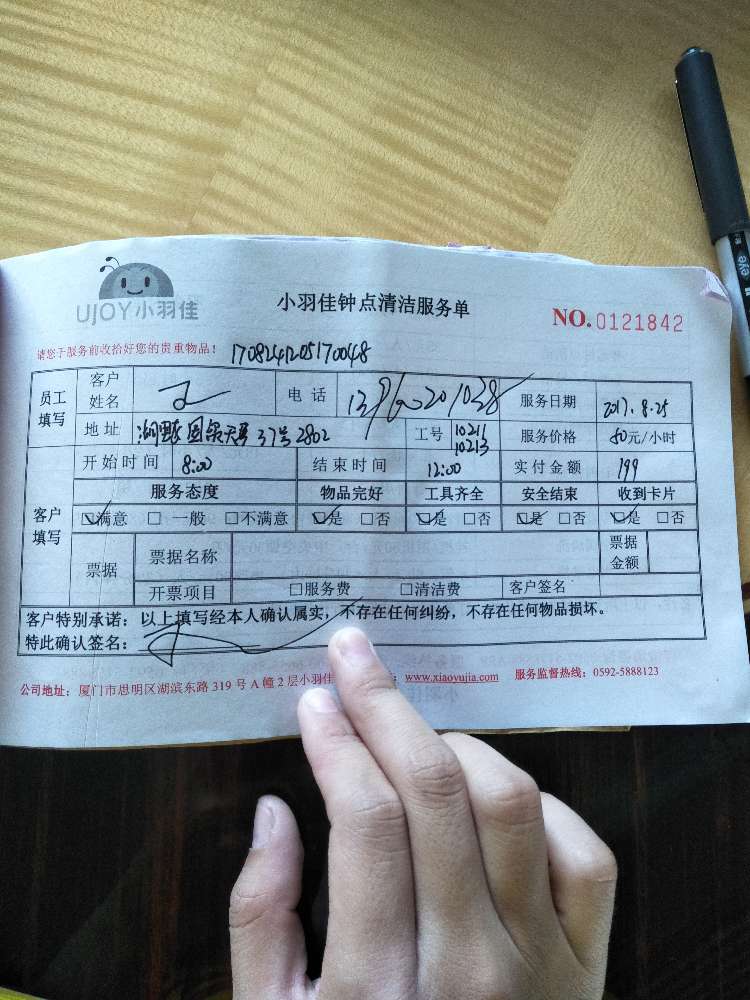 UJOY小羽佳
小羽佳钟点清洁服务单
NO.0121842
请您于服务前收拾好您的贵重物品！ 1708241205170048
员工填写 客户姓名 电话 服务日期 2017.8.25
地址 37号2802 工号 10211 10213 服务价格 50元/小时
开始时间 8:00 结束时间 12:00 实付金额 199
客户填写 服务态度 物品完好 工具齐全 安全结束 收到卡片
☑满意 □一般 □不满意 ☑是 □否 ☑是 □否 ☑是 □否 ☑是 □否
票据 票据名称 票据金额
开票项目 □服务费 □清洁费 客户签名
客户特别承诺：以上填写经本人确认属实，不存在任何纠纷，不存在任何物品损坏。
特此确认签名：
公司地址：厦门市思明区湖滨东路 319 号 A 幢 2 层小羽佳 www.xiaoyujia.com 服务监督热线：0592-5888123
eye